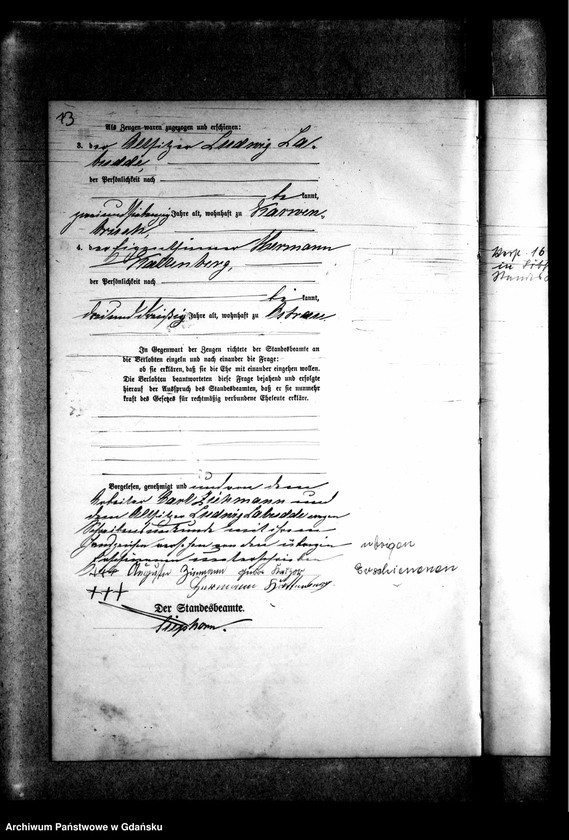 13
Als Zeugen waren zugezogen und erschienen:
3. der Altsitzer Ludwig La-
budde
der Persönlichkeit nach
be kannt,
zweiundsiebenzig Jahre alt, wohnhaft zu Karwen-
bruch,
4. der Eigenthümer Hermann
Kallenberg,
der Persönlichkeit nach
be kannt,
dreiunddreißig Jahre alt, wohnhaft zu Ostrau
In Gegenwart der Zeugen richtete der Standesbeamte an
die Verlobten einzeln und nach einander die Frage:
ob sie erklären, daß sie die Ehe mit einander eingehen wollen.
Die Verlobten beantworteten diese Frage bejahend und erfolgte
hierauf der Ausspruch des Standesbeamten, daß er sie nunmehr
kraft des Gesetzes für rechtmäßig verbundene Eheleute erkläre.
Vorgelesen, genehmigt und und von dem
Arbeiter Carl und
dem Altsitzer Ludwig Labudde wegen
Schreibensunkunde mit ihrem
Handzeichen versehen von den übrigen
unterschrieben
übrigen
Erschienenen
geb.
Hermann
+++
Der Standesbeamte.
16
in
Archiwum Państwowe w Gdańsku